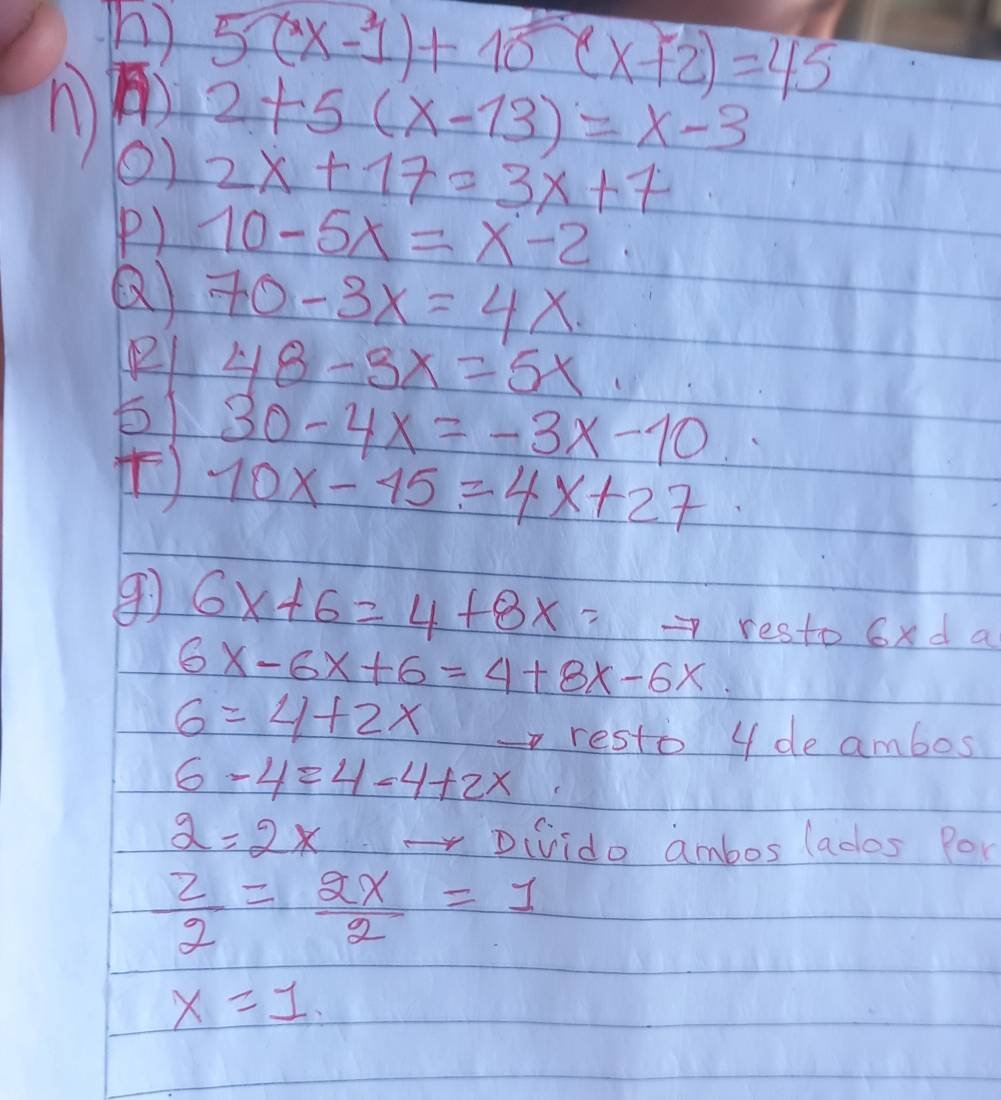 h) 5(x-1)+10(x+2)=45
n) 2+5(x-13)=x-3
O) 2x+17=3x+7.
P) 10-5x=x-2.
Q) 70-3x=4x.
R) 48-3x=5x.
S) 30-4x=-3x-10.
T) 10x-15=4x+27.
g) 6x+6=4+8x= → resto 6x da
6x-6x+6=4+8x-6x.
6=4+2x → resto 4 de ambos
6-4=4-4+2x.
2=2x → Divido ambos lados Por
2/2 = 2x/2 = 1
x=1.